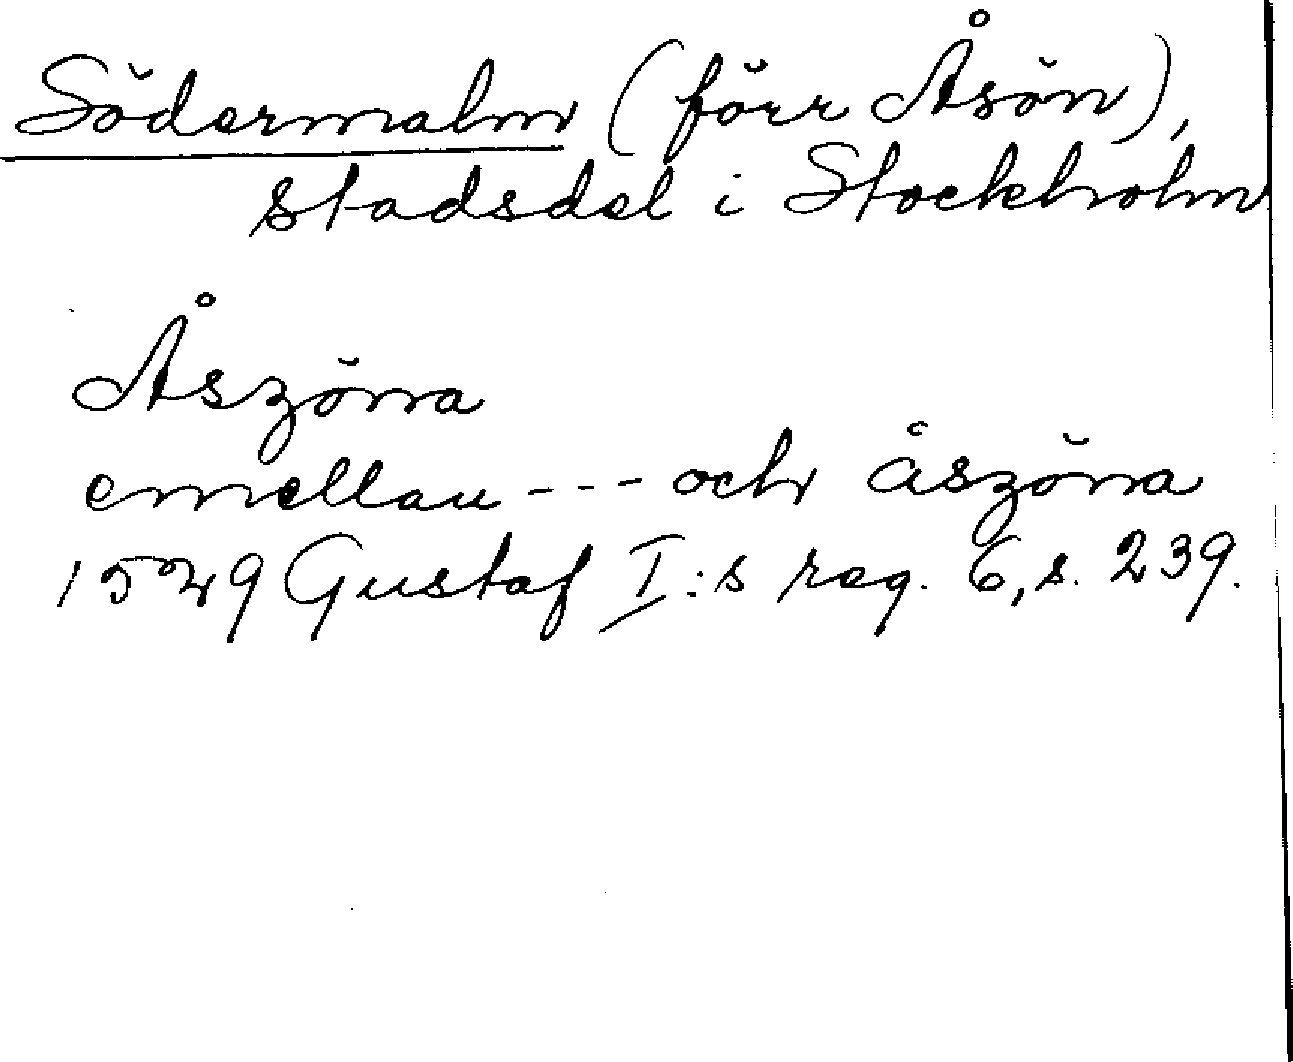 Södermalm (förr Åsön),
stadsdel i Stockholm
Åszöna
emellan - - - och åszöna
1529 Gustaf I:s reg. 6, s. 239.